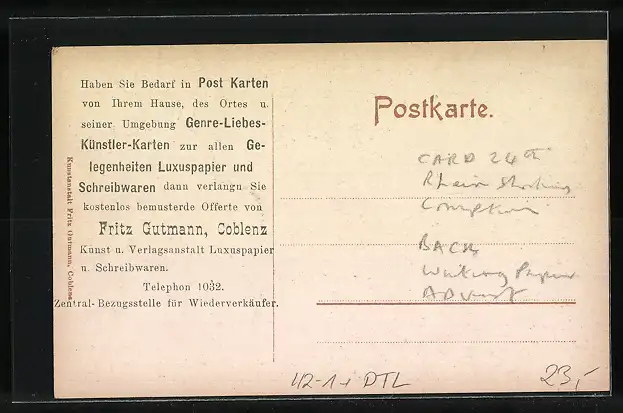 Haben Sie Bedarf in Post Karten
von Ihrem Hause, des Ortes u.
seiner Umgebung Genre-Liebes-
Künstler-Karten zur allen Ge-
legenheiten Luxuspapier und
Schreibwaren dann verlangn Sie
kostenlos bemusterde Offerte von
Fritz Gutmann, Coblenz
Kunst u. Verlagsanstalt Luxuspapier
u. Schreibwaren.
Telephon 1032.
Zentral-Bezugsstelle für Wiederverkäufer.
Kunstanstalt Fritz Gutmann, Coblenz
Postkarte.
CARD 24th
Rhein
BACK
Writing Paper
ADvert
42-1+ DTL
23,-